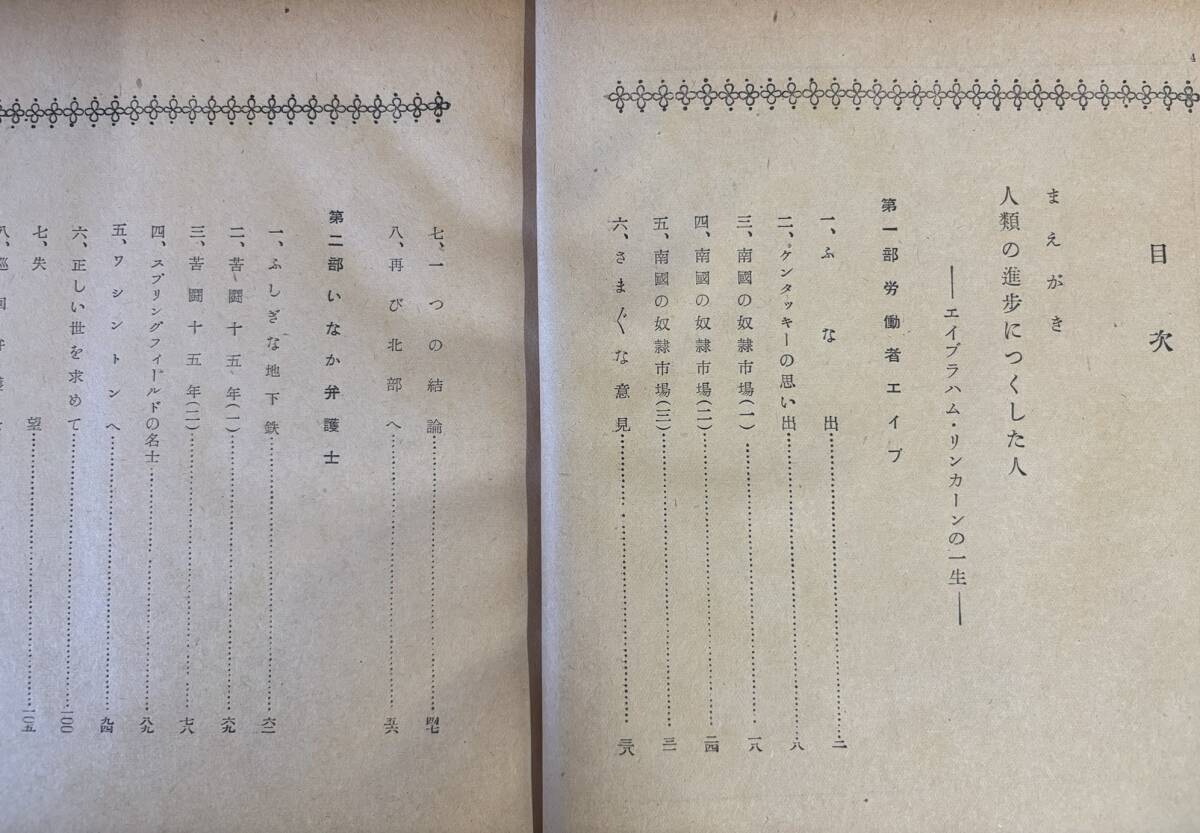 4
目次
まえがき
人類の進歩につくした人
――エイブラハム・リンカーンの一生――
第一部 労働者エイブ
一、ふな出……二
二、ケンタッキーの思い出……八
三、南國の奴隷市場(一)……一八
四、南國の奴隷市場(二)……二四
五、南國の奴隷市場(三)……三一
六、さま〴〵な意見……三八
七、一つの結論……四七
八、再び北部へ……五六
第二部 いなか弁護士
一、ふしぎな地下鉄……六一
二、苦闘十五年(一)……六九
三、苦闘十五年(二)……七八
四、スプリングフィールドの名士……八九
五、ワシントンへ……九四
六、正しい世を求めて……一〇〇
七、失望……一〇五